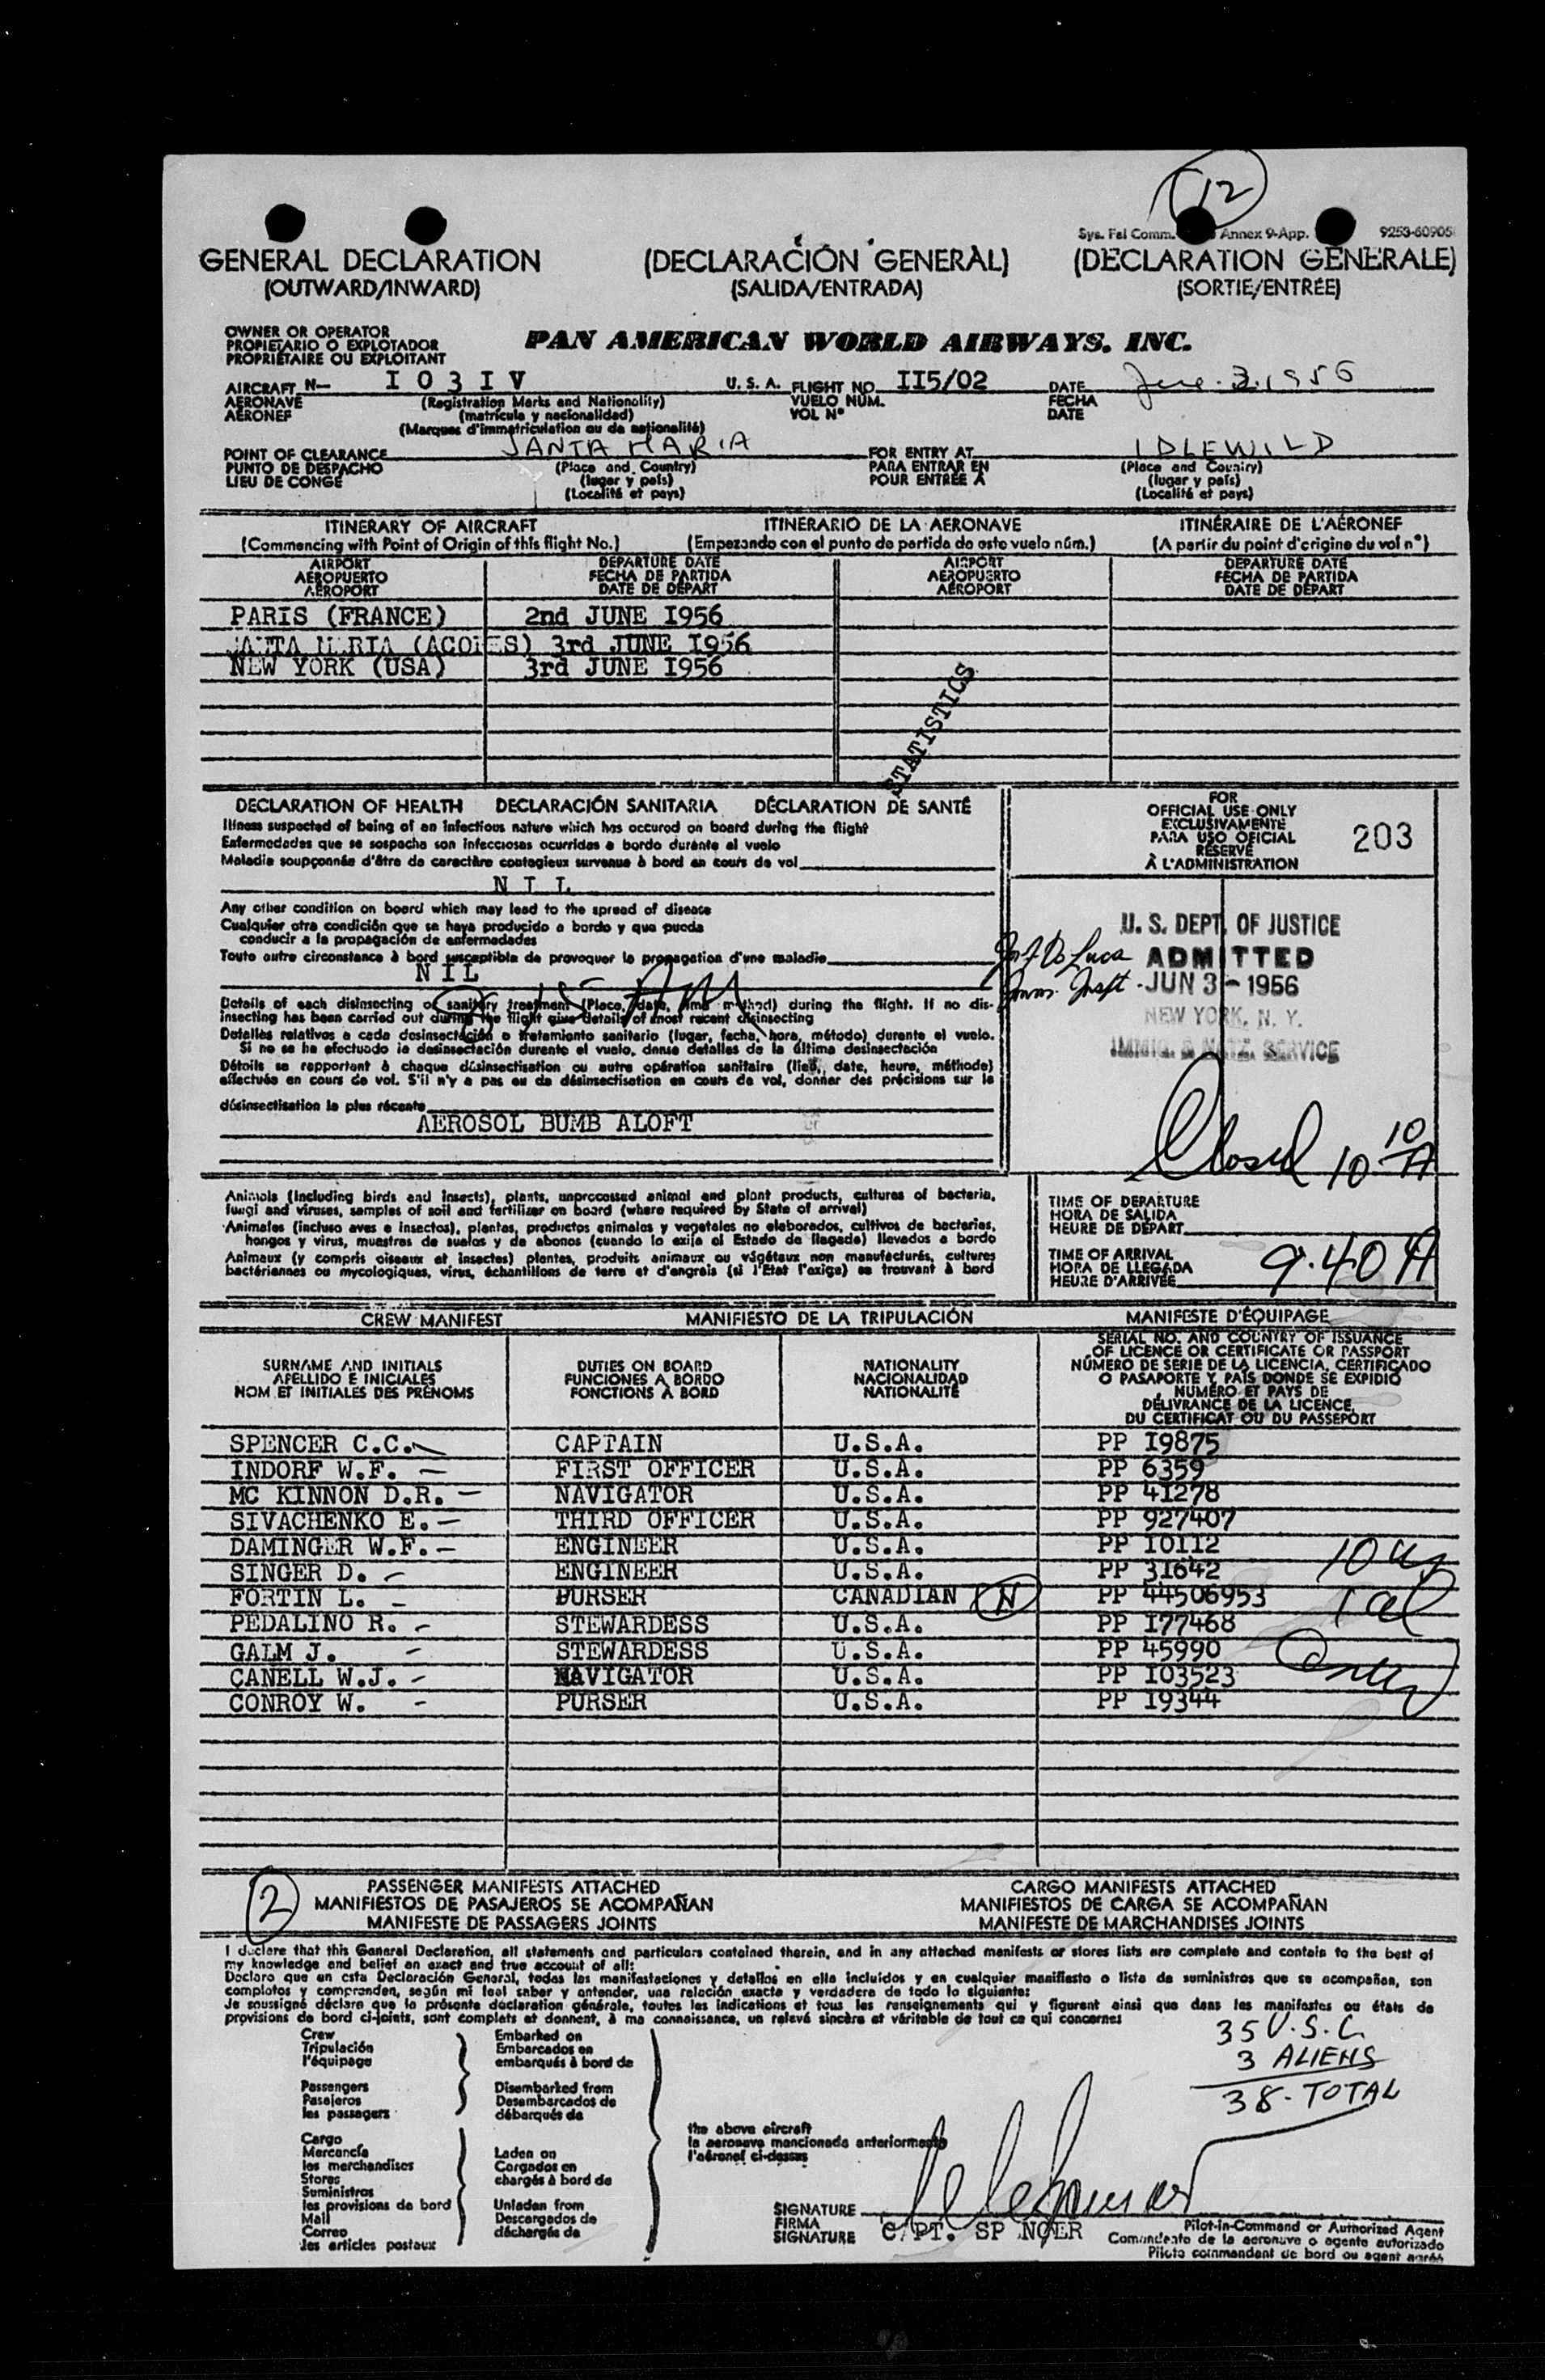 12
Sys. Fal Comm. Annex 9-App. 9253-60905
GENERAL DECLARATION (DECLARACIÓN GENERAL) (DECLARATION GENERALE)
(OUTWARD/INWARD) (SALIDA/ENTRADA) (SORTIE/ENTRÉE)
OWNER OR OPERATOR
PROPIETARIO O EXPLOTADOR
PROPRIÉTAIRE OU EXPLOITANT
PAN AMERICAN WORLD AIRWAYS, INC.
AIRCRAFT N— I 0 3 I V U. S. A. FLIGHT NO. II5/02 DATE June 3. 1956
AERONAVE (Registration Marks and Nationality) VUELO NÚM. FECHA
AÉRONEF (matrícula y nacionalidad) VOL N° DATE
(Marques d'immatriculation ou de nationalité)
POINT OF CLEARANCE SANTA MARIA FOR ENTRY AT IDLEWILD
PUNTO DE DESPACHO (Place and Country) PARA ENTRAR EN (Place and Country)
LIEU DE CONGÉ (lugar y país) POUR ENTRÉE À (lugar y país)
(Localité et pays) (Localité et pays)
ITINERARY OF AIRCRAFT ITINERARIO DE LA AERONAVE ITINÉRAIRE DE L'AÉRONEF
(Commencing with Point of Origin of this flight No.) (Empezando con el punto de partida de este vuelo núm.) (A partir du point d'origine du vol n°)
AIRPORT DEPARTURE DATE AIRPORT DEPARTURE DATE
AEROPUERTO FECHA DE PARTIDA AEROPUERTO FECHA DE PARTIDA
AÉROPORT DATE DE DÉPART AÉROPORT DATE DE DÉPART
PARIS (FRANCE) 2nd JUNE I956
SANTA MARIA (ACORES) 3rd JUNE I956
NEW YORK (USA) 3rd JUNE I956
STATISTICS
DECLARATION OF HEALTH DECLARACIÓN SANITARIA DÉCLARATION DE SANTÉ
Illness suspected of being of an infectious nature which has occured on board during the flight
Enfermedades que se sospecha son infecciosas ocurridas a bordo durante el vuelo
Maladie soupçonnée d'être de caractère contagieux survenue à bord en cours de vol
N I L
Any other condition on board which may lead to the spread of disease
Cualquier otra condición que se haya producido a bordo y que pueda
conducir a la propagación de enfermedades
Toute autre circonstance à bord susceptible de provoquer la propagation d'une maladie
N I L
Details of each disinsecting or sanitary treatment (Place, date, time method) during the flight. If no dis-
insecting has been carried out during the flight give details of most recent disinsecting
Detalles relativos a cada desinsectación o tratamiento sanitario (lugar, fecha, hora, método) durante el vuelo.
Si no se ha efectuado la desinsectación durante el vuelo, dense detalles de la última desinsectación
Détails se rapportant à chaque désinsectisation ou autre opération sanitaire (lieu, date, heure, méthode)
effectuée en cours de vol. S'il n'y a pas eu de désinsectisation en cours de vol, donner des précisions sur la
désinsectisation la plus récente
AEROSOL BUMB ALOFT
FOR
OFFICIAL USE ONLY
EXCLUSIVAMENTE
PARA USO OFICIAL
RÉSERVÉ
À L'ADMINISTRATION
203
U. S. DEPT. OF JUSTICE
ADMITTED
JUN 3 - 1956
NEW YORK, N. Y.
IMMIG. & NATZ. SERVICE
De Luca
Imm. Inspt.
Closed 10 10/A
Animals (including birds and insects), plants, unprocessed animal and plant products, cultures of bacteria,
fungi and viruses, samples of soil and fertilizer on board (where required by State of arrival)
Animales (incluso aves e insectos), plantas, productos animales y vegetales no elaborados, cultivos de bacterias,
hongos y virus, muestras de suelos y de abonos (cuando lo exija el Estado de llegada) llevados a bordo
Animaux (y compris oiseaux et insectes) plantes, produits animaux ou végétaux non manufacturés, cultures
bactériennes ou mycologiques, virus, échantillons de terre et d'engrais (si l'Etat l'exige) se trouvant à bord
TIME OF DEPARTURE
HORA DE SALIDA
HEURE DE DÉPART
TIME OF ARRIVAL
HORA DE LLEGADA
HEURE D'ARRIVÉE
9.40 A
CREW MANIFEST MANIFIESTO DE LA TRIPULACIÓN MANIFESTE D'ÉQUIPAGE
SURNAME AND INITIALS
APELLIDO E INICIALES
NOM ET INITIALES DES PRÉNOMS
DUTIES ON BOARD
FUNCIONES A BORDO
FONCTIONS À BORD
NATIONALITY
NACIONALIDAD
NATIONALITÉ
SERIAL NO. AND COUNTRY OF ISSUANCE
OF LICENCE OR CERTIFICATE OR PASSPORT
NÚMERO DE SERIE DE LA LICENCIA, CERTIFICADO
O PASAPORTE Y PAÍS DONDE SE EXPIDIÓ
NUMÉRO ET PAYS DE
DÉLIVRANCE DE LA LICENCE,
DU CERTIFICAT OU DU PASSEPORT
SPENCER C.C. CAPTAIN U.S.A. PP I9875
INDORF W.F. — FIRST OFFICER U.S.A. PP 6359
MC KINNON D.R. — NAVIGATOR U.S.A. PP 4I278
SIVACHENKO E. — THIRD OFFICER U.S.A. PP 927407
DAMINGER W.F. — ENGINEER U.S.A. PP I0II2
SINGER D. — ENGINEER U.S.A. PP 3I642
FORTIN L. — PURSER CANADIAN N PP 44506953
PEDALINO R. — STEWARDESS U.S.A. PP I77468
GALM J. — STEWARDESS U.S.A. PP 45990
CANELL W.J. — NAVIGATOR U.S.A. PP I03523
CONROY W. — PURSER U.S.A. PP I9344
2
PASSENGER MANIFESTS ATTACHED CARGO MANIFESTS ATTACHED
MANIFIESTOS DE PASAJEROS SE ACOMPAÑAN MANIFIESTOS DE CARGA SE ACOMPAÑAN
MANIFESTE DE PASSAGERS JOINTS MANIFESTE DE MARCHANDISES JOINTS
I declare that this General Declaration, all statements and particulars contained therein, and in any attached manifests or stores lists are complete and contain to the best of
my knowledge and belief an exact and true account of all:
Declaro que en esta Declaración General, todas las manifestaciones y detalles en ella incluidos y en cualquier manifiesto o lista de suministros que se acompañan, son
completos y comprenden, según mi leal saber y entender, una relación exacta y verdadera de todo lo siguiente:
Je soussigné déclare que la présente déclaration générale, toutes les indications et tous les renseignements qui y figurent ainsi que dans les manifestes ou états de
provisions de bord ci-joints, sont complets et donnent, à ma connaissance, un relevé sincère et véritable de tout ce qui concerne:
Crew
Tripulación
l'équipage
Passengers
Pasajeros
les passagers
Cargo
Mercancía
les merchandises
Stores
Suministros
les provisions de bord
Mail
Correo
les articles postaux
Embarked on
Embarcados en
embarqués à bord de
Disembarked from
Desembarcados de
débarqués de
Laden on
Cargados en
chargés à bord de
Unladen from
Descargados de
déchargés de
the above aircraft
la aeronave mencionada anteriormente
l'aéronef ci-dessus
35 U.S.C.
3 ALIENS
38 - TOTAL
SIGNATURE
FIRMA
SIGNATURE
C PT. SP NCER
Pilot-in-Command or Authorized Agent
Comandante de la aeronave o agente autorizado
Pilote commandant de bord ou agent agréé